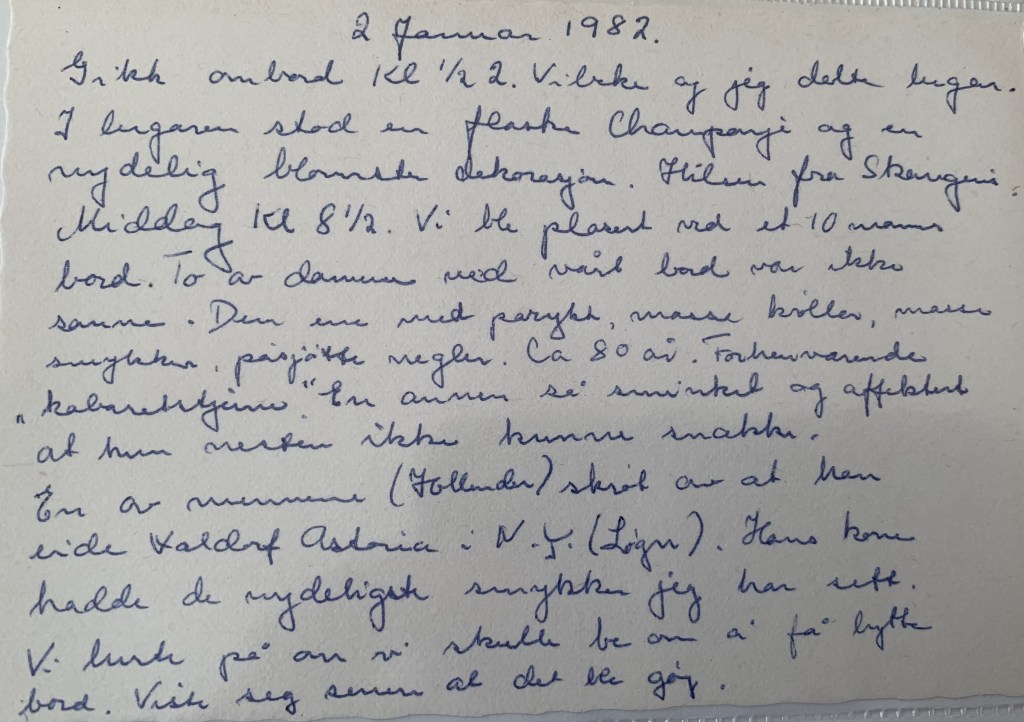 2 Januar 1982.
Gikk ombord Kl 1/2 2. Vibeke og jeg delte lugar.
I lugaren stod en flaske Champanje og en
nydelig blomster dekorasjon. Hilsen fra
Middag Kl 8 1/2. Vi ble plasert ved et 10 manns
bord. To av damene ved vårt bord var ikke
sanne. Den ene med parykk, masse krøller, masse
smykker, påsjøtte negler. Ca 80 år. Forhenværende
"kabaretstjerne". En annen så sminket og affektert
at hun nesten ikke kunne snakke.
En av mennene (Hollender) skrøt av at han
eide Waldorf Astoria i N.Y. (Løgn). Hans kone
hadde de nydeligste smykker jeg har sett.
Vi lurte på om vi skulle be om å få bytte
bord. Viste seg senere at det ble gøy.